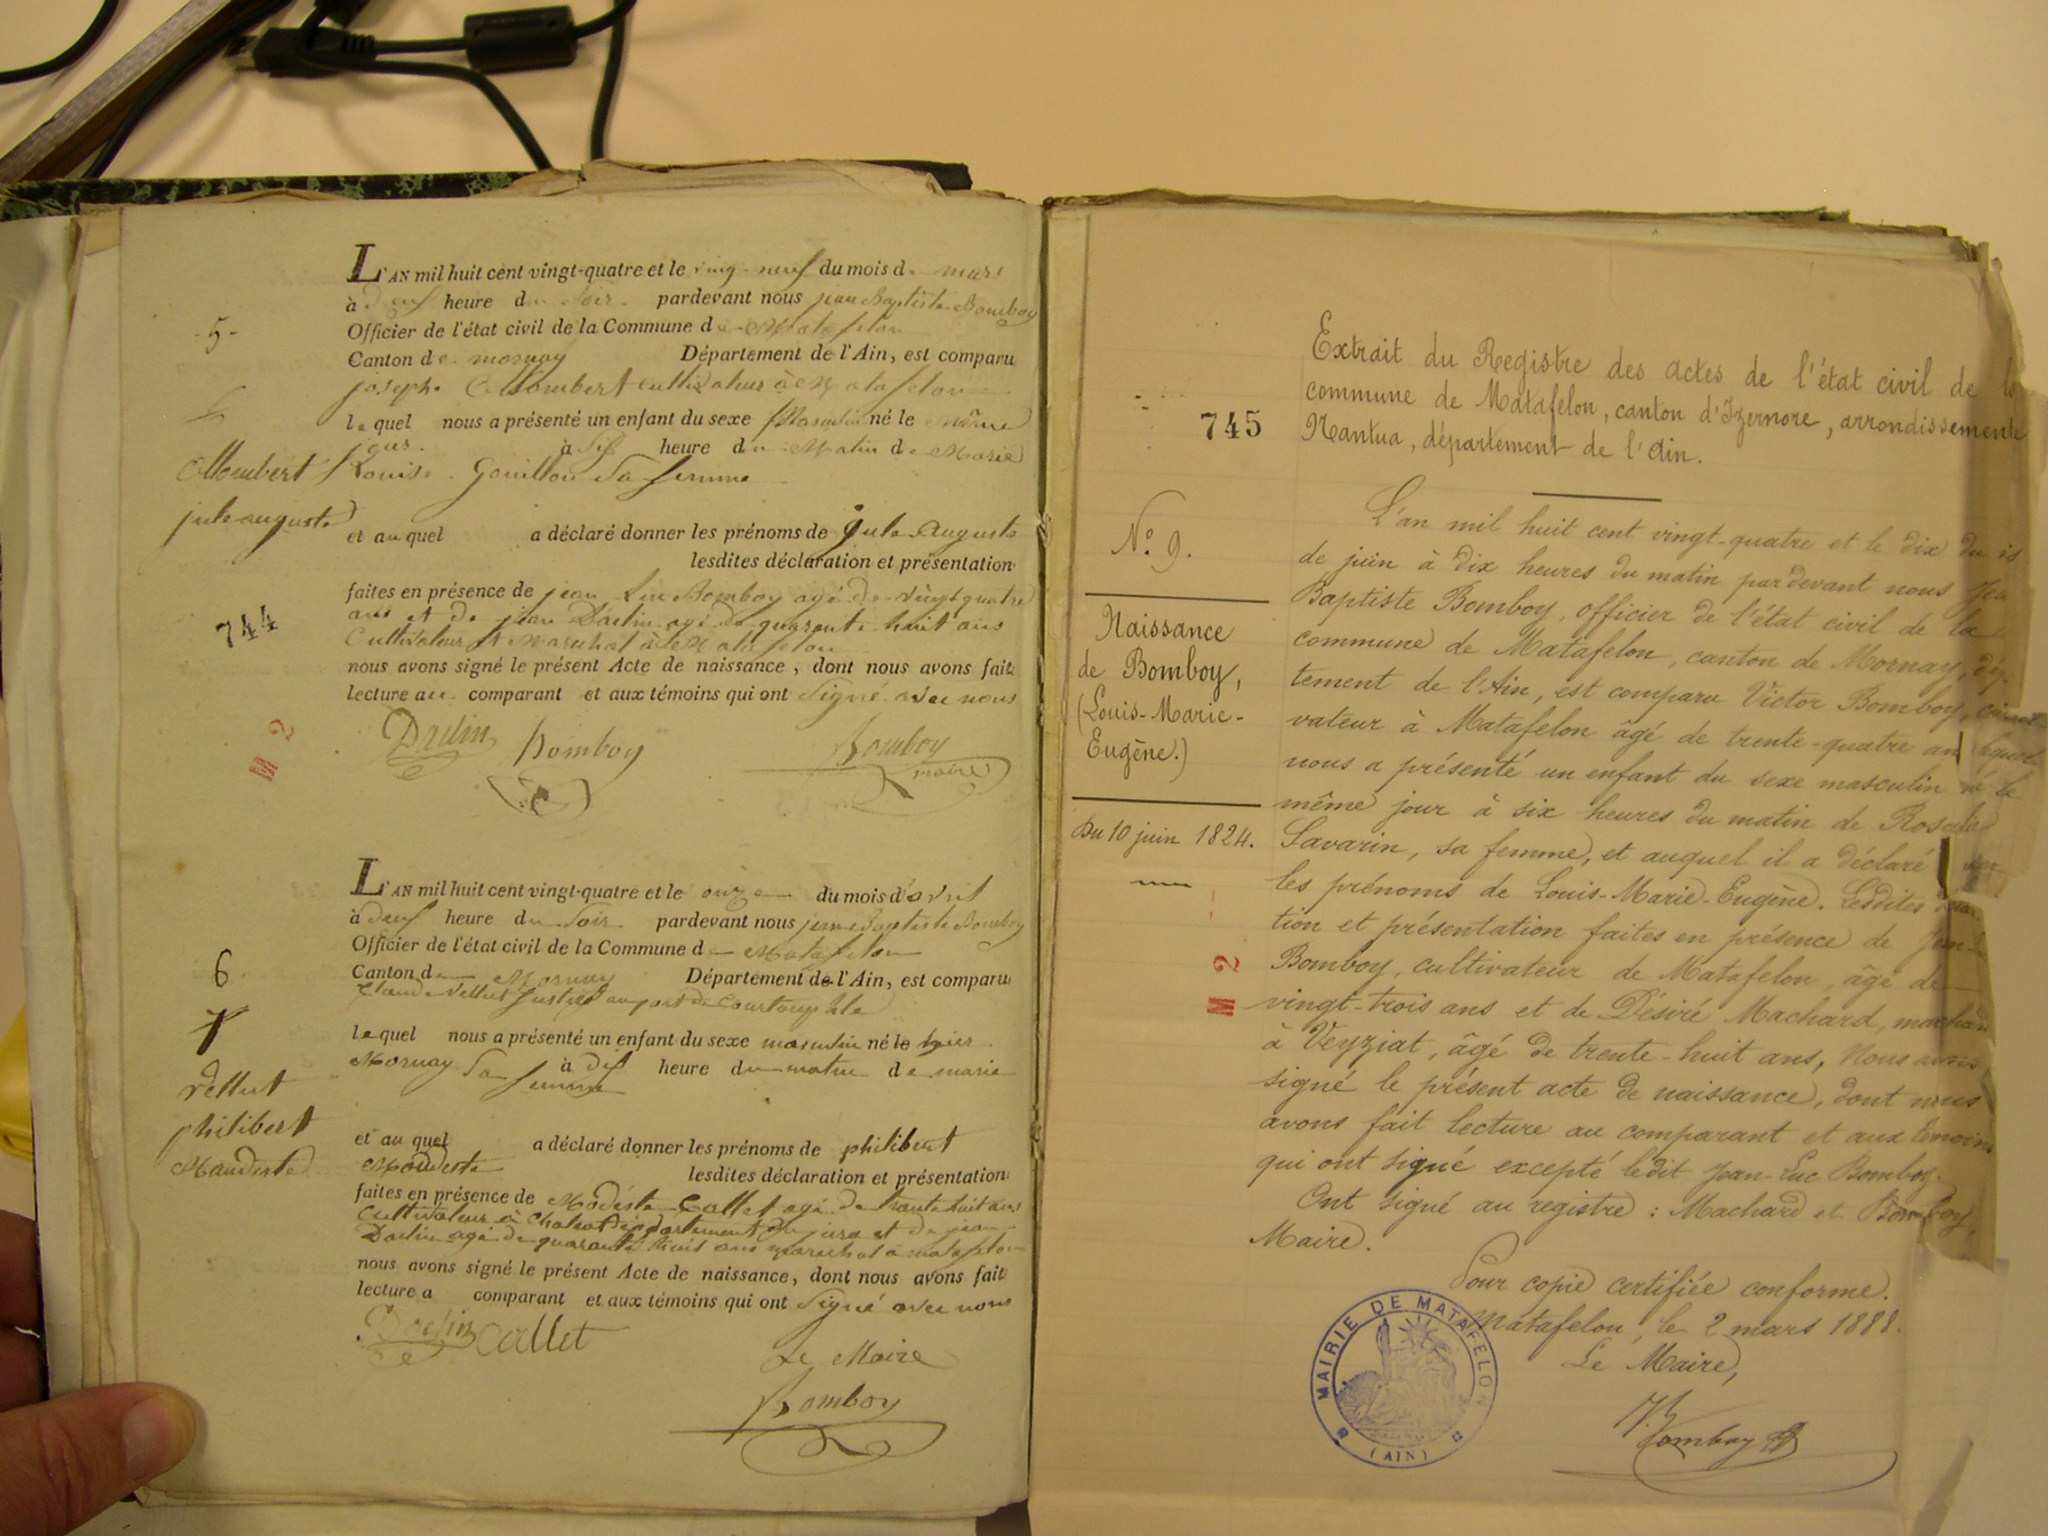 L'AN mil huit cent vingt-quatre et le vingt-neuf du mois de mars
à deux heure du soir pardevant nous jean Baptiste Bomboy
- 5 -
Officier de l'état civil de la Commune de Matafelon
Canton de mornay Département de l'Ain, est comparu
joseph cultivateur à Matafelon
le quel nous a présenté un enfant du sexe Masculin né le même
jour à heure du Matin de Marie
Louise Gouillon Sa femme
jule auguste
et au quel a déclaré donner les prénoms de jule Auguste
lesdites déclaration et présentation
faites en présence de jean Luc Bomboy agé de vingt quatre
ans et de jean Daclin agé de quarante huit ans
744
Cultivateur et Marechal à Matafelon
nous avons signé le présent Acte de naissance, dont nous avons fait
lecture au comparant et aux témoins qui ont Signé avec nous
M 2
Daclin Bomboy Bomboy
maire
L'AN mil huit cent vingt-quatre et le onze du mois d'avril
à deux heure du Soir pardevant nous jean Baptiste Bomboy
Officier de l'état civil de la Commune de Matafelon
6
Canton de Mornay Département de l'Ain, est comparu
Claude Vellut au port de
le quel nous a présenté un enfant du sexe masculin né le hier
à dix heure du matin de marie
Mornay Sa femme
Vellut
philibert
Maudeste
et au quel a déclaré donner les prénoms de philibert
Modeste lesdites déclaration et présentation
faites en présence de Modeste Callet agé de trante huit ans
Cultivateur à département du jura et de jean
Daclin agé de quarante huit ans marechal à matafelon
nous avons signé le présent Acte de naissance, dont nous avons fait
lecture a comparant et aux témoins qui ont Signé avec nous
Daclin Callet
Le Maire
Bomboy
Extrait du Registre des actes de l'état civil de la
commune de Matafelon, canton d'Izernore, arrondissement
745
Nantua, département de l'Ain.
L'an mil huit cent vingt-quatre et le dix du
de juin à dix heures du matin pardevant nous Jea
Baptiste Bomboy, officier de l'état civil de la
commune de Matafelon, canton de Mornay, dép
tement de l'Ain, est comparu Victor Bomboy,
vateur à Matafelon âgé de trente-quatre an lequel
nous a présenté un enfant du sexe masculin né le
même jour à six heures du matin de Rosalie
Savarin, sa femme, et auquel il a déclaré
les prénoms de Louis-Marie-Eugène. Lesdites
tion et présentation faites en présence de Jean-L
Bomboy, cultivateur de Matafelon, âgé de
vingt-trois ans et de Désiré Machard, marchand
à Veyziat, âgé de trente-huit ans, Nous avons
signé le présent acte de naissance, dont nous
avons fait lecture au comparant et aux témoins
qui ont signé excepté ledit Jean-Luc Bomboy.
Ont signé au registre : Machard et Bomboy,
Maire.
N.º 9.
Naissance
de Bomboy,
(Louis-Marie-
Eugène.)
Du 10 juin 1824.
M 2
Pour copie certifiée conforme.
Matafelon, le 2 mars 1888.
Le Maire,
Bomboy
MAIRIE DE MATAFELON
(AIN)